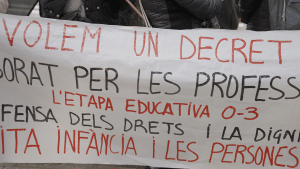 VOLEM UN DECRET
ORAT PER LES PROFESS
L'ETAPA EDUCATIVA 0-3
FENSA DELS DRETS I LA DIGNI
ITA INFÀNCIA I LES PERSONES